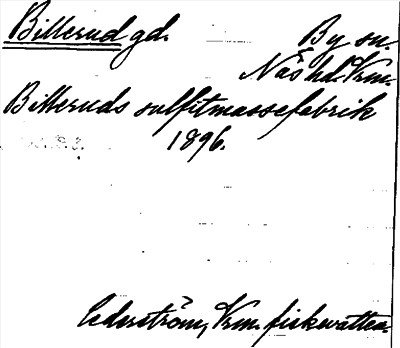 Billerud gd. By sn.
Näs hd. Vrm.
Billeruds sulfitmassefabrik
1896.
Cederström, Vrm. fiskevatten.